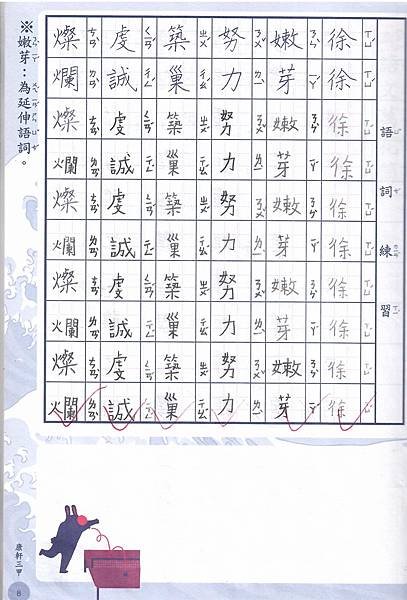 語詞練習
徐徐徐徐徐徐徐徐徐徐
嫩芽嫩芽嫩芽嫩芽嫩芽
努力努力努力努力努力
築巢築巢築巢築巢築巢
虔誠虔誠虔誠虔誠虔誠
燦爛燦爛燦爛燦爛燦爛
※嫩芽：為延伸語詞。
康軒三甲
8